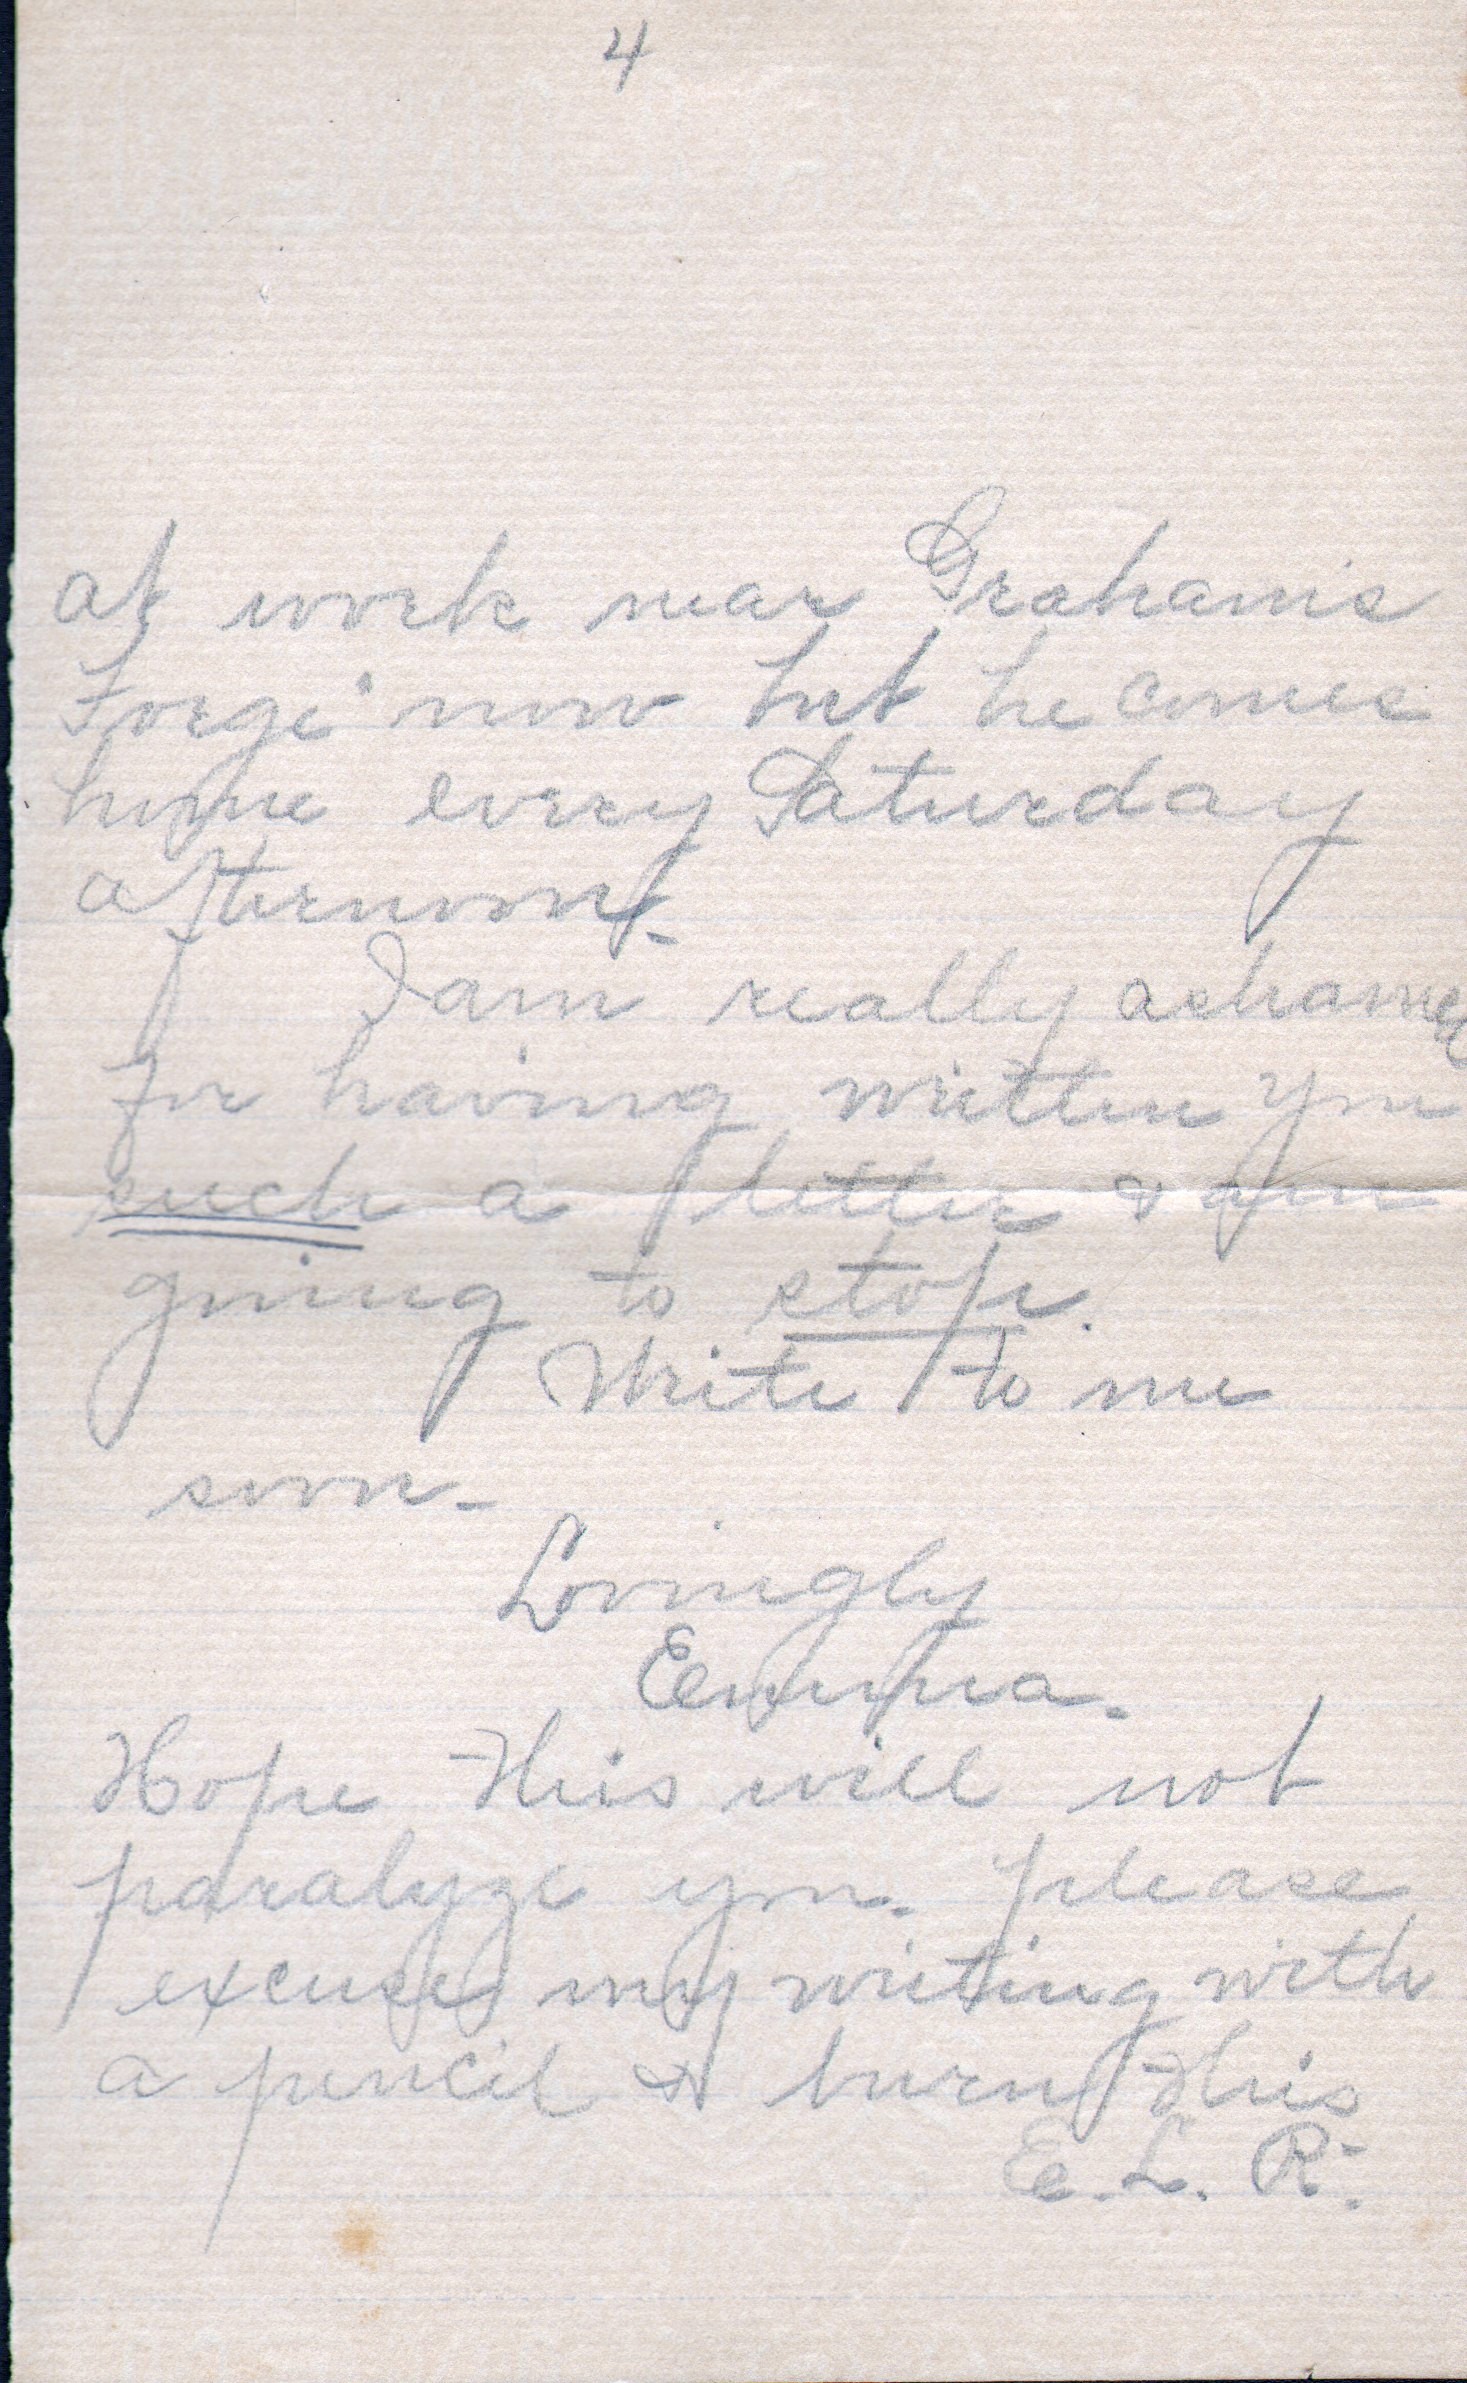 4
at work near Graham's
Forge now but he comes
home every Saturday
afternoon.
I am really ashamed
for having written you
such a letter & am
going to stop.
Write to me
soon-
Lovingly
Emma.
Hope this will not
paralyze you. please
excuse my writing with
a pencil & burn this
E. L. R.